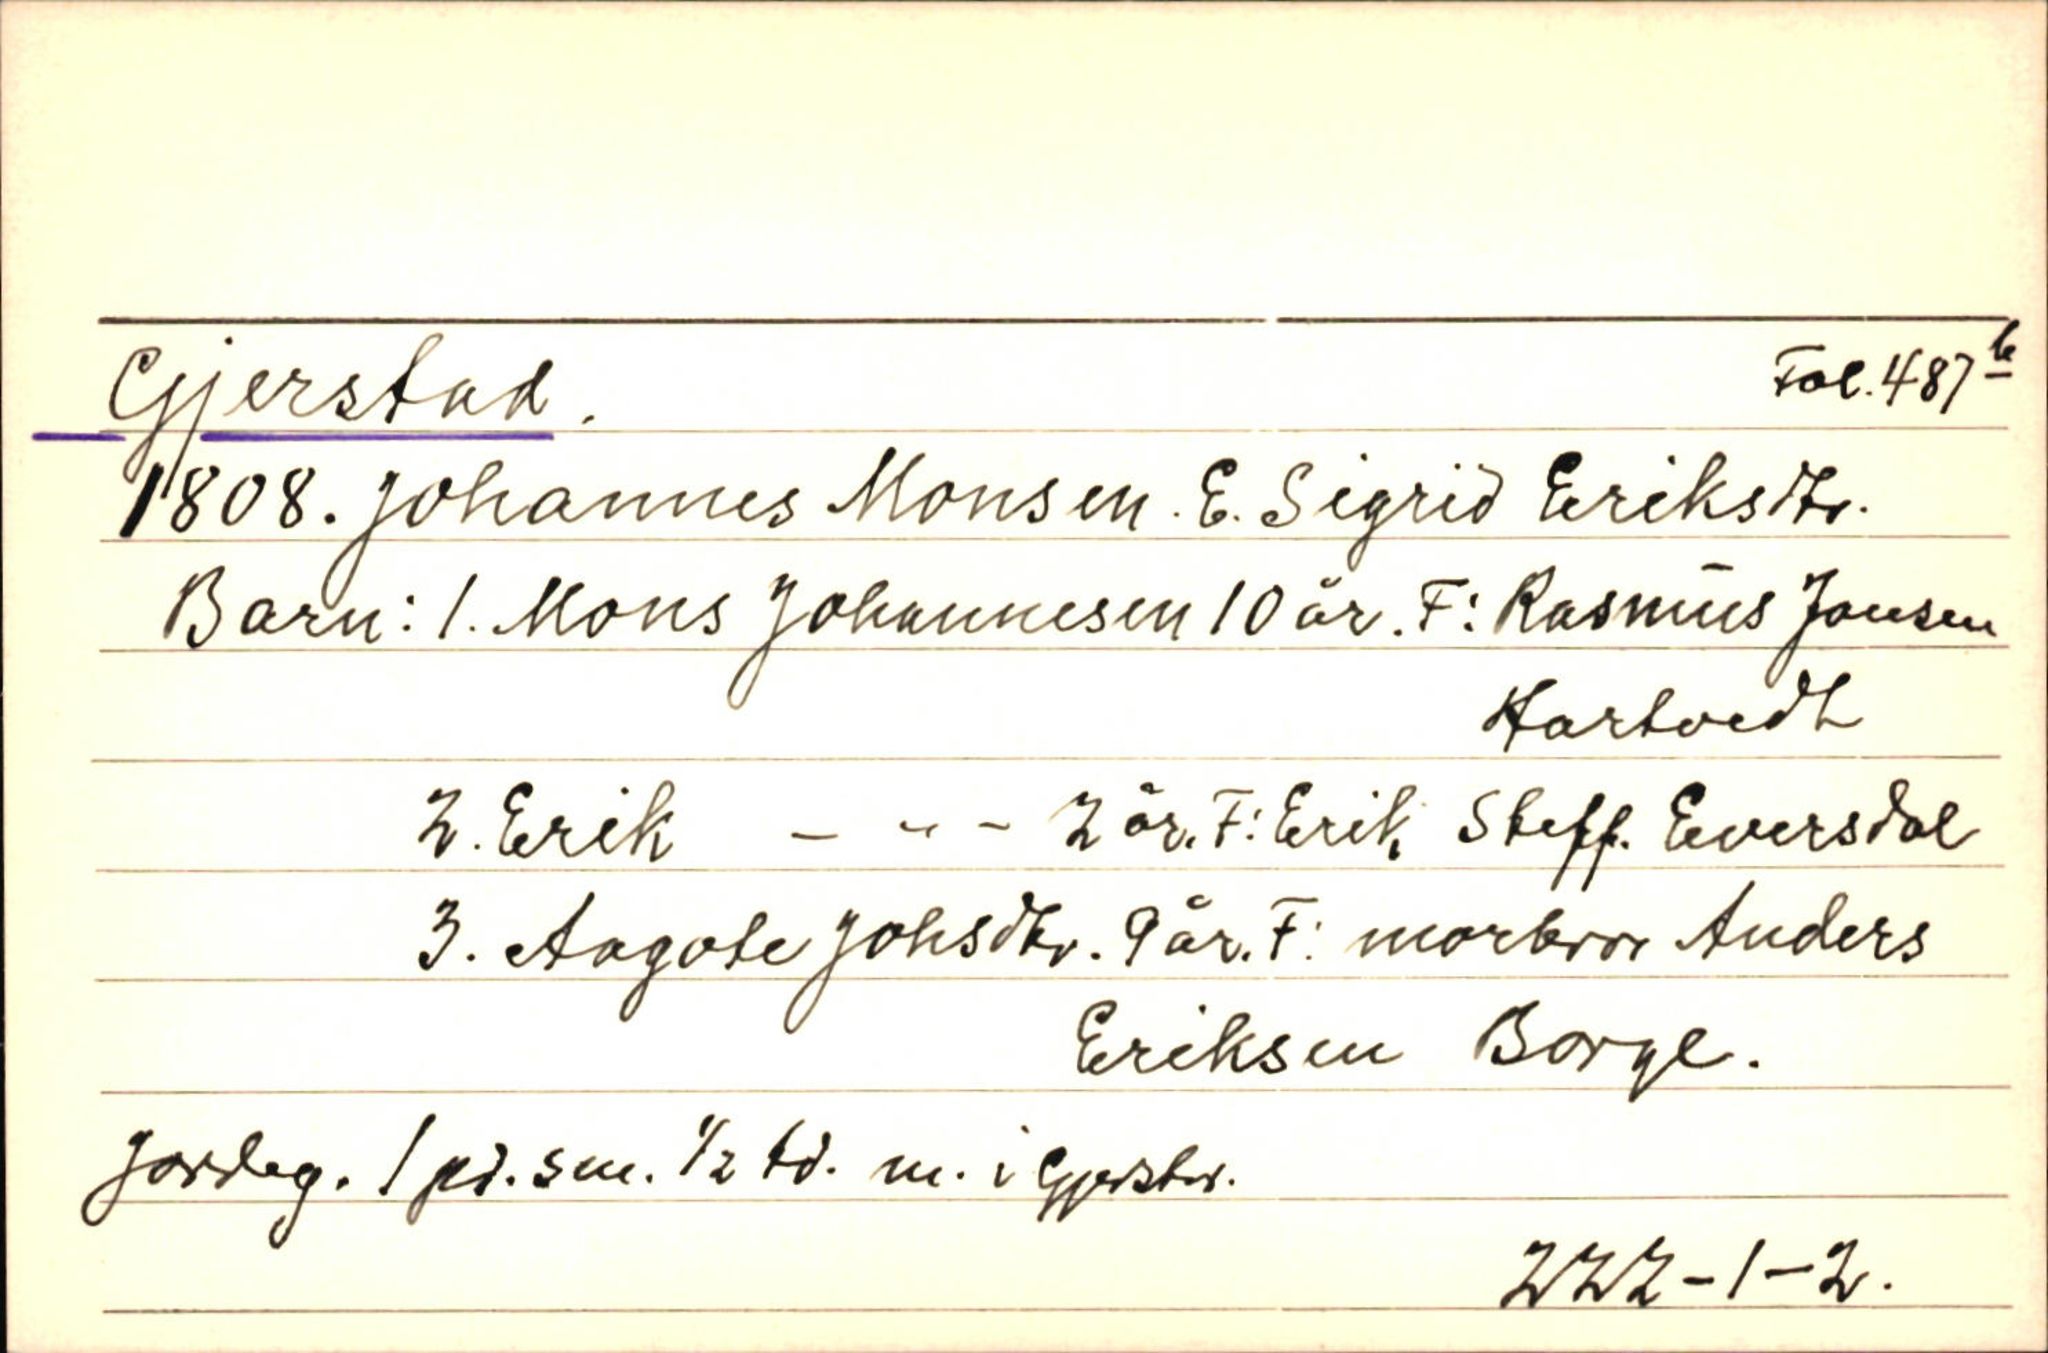 Gjerstad. Fol. 487b
1808. Johannes Monsen. E. Sigrid Eriksdtr.
Barn: 1. Mons Johannesen 10 år. F: Rasmus Jonsen
Hartvedt
2. Erik - " - 2 år. F: Erik Steff. Eversdal
3. Aagote Johsdtr. 9 år. F: morbror Anders
Eriksen Borge.
Jordeg. 1 pd. sm. 1/2 td. m. i Gjerstad.
222-1-2.